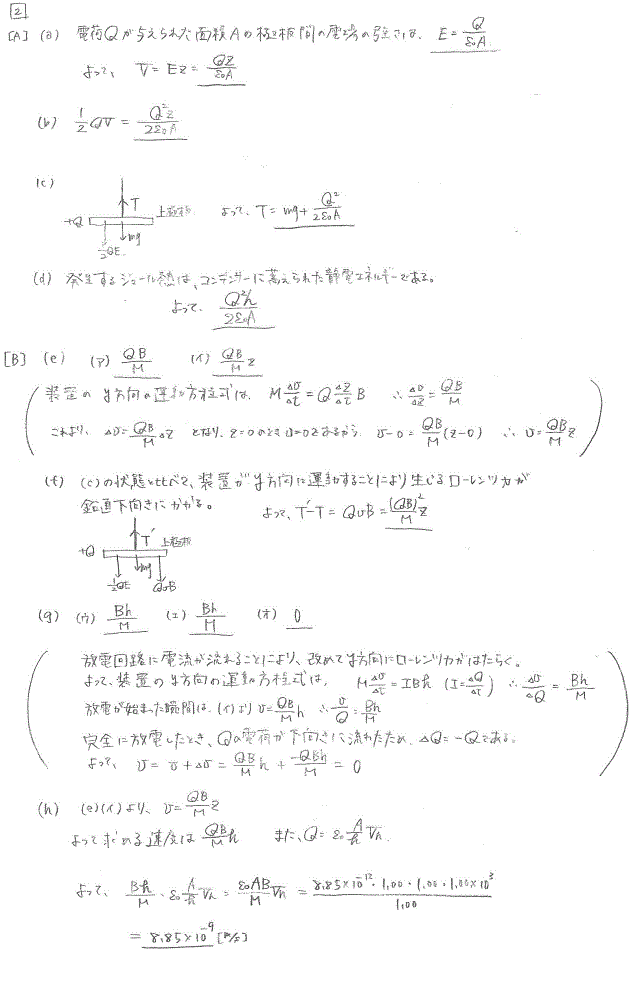 2
[A] (a) 電荷Qが与えられた面積Aの極板間の電場の強さは、 E = Q/ε₀A
よって、 V = Ez = Qz/ε₀A
(b) 1/2 QV = Q²z/2ε₀A
(c)
T
+Q 上極板 よって、T = mg + Q²/2ε₀A
1/2 QE mg
(d) 発生するジュール熱は、コンデンサーに蓄えられた静電エネルギーである。
よって、 Q²h/2ε₀A
[B] (e) (ア) QB/M (イ) QB/M z
装置のy方向の運動方程式は、 M Δv/Δt = Q Δz/Δt B ∴ Δv/Δz = QB/M
これより、 Δv = QB/M Δz となり、z=0のときv=0であるから v-0 = QB/M (z-0) ∴ v = QB/M z
(f) (c)の状態と比べて、装置がy方向に運動することにより生じるローレンツ力が
鉛直下向きにかかる。 よって、T'-T = QvB = (QB)²/M z
+Q T' 上極板
1/2 QE mg QvB
(g) (ウ) Bh/M (エ) Bh/M (オ) 0
放電回路に電流が流れることにより、改めてy方向にローレンツ力がはたらく。
よって、装置のy方向の運動方程式は、 M Δv/Δt = IBh (I = ΔQ/Δt) ∴ Δv/ΔQ = Bh/M
放電が始まった瞬間は、(イ)より v = QB/M h ∴ v/Q = Bh/M
完全に放電したとき、Qの電荷が下向きに流れたため、ΔQ = -Qである。
よって、 v = v + Δv = QB/M h + -QBh/M = 0
(h) (e)(イ)より、 v = QB/M z
よって求める速度は QB/M h また、Q = ε₀ A/h Vh
よって、 Bh/M · ε₀ A/h Vh = ε₀AB/M Vh = 8.85×10⁻¹² · 1.00 · 1.00 · 1.00×10³/1.00
= 8.85×10⁻⁹ [m/s]